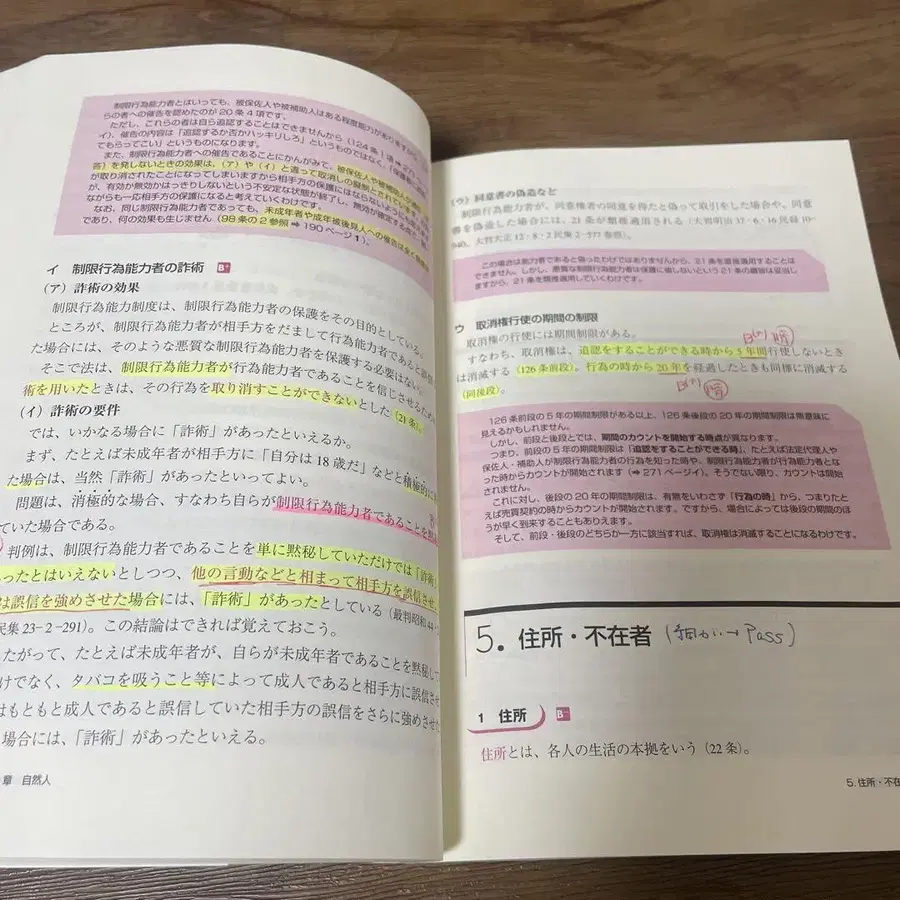 制限行為能力者とはいっても、被保佐人や被補助人はある程度能力があります
らの者への催告を認めたのが20条4項です。
ただし、これらの者は自ら追認することはできませんから（124条
イ）、催告の内容は「追認するか否かハッキリしろ」というものではなく、
てもらってこい」というものになります。
また、制限行為能力者への催告であることにかんがみて、被保佐人や被補助人が
答）を発しないときの効果は、（ア）や（イ）と違って取消しの擬制とされています。
が取り消されたことになってしまいますから相手方の保護にはならないようにも
が、有効か無効かはっきりしないという不安定な状態が終了し、無効が確定する
ながらも一応相手方の保護になると考えていくわけです。
なお、同じ制限行為能力者であっても、未成年者や成年被後見人への催告は全く
であり、何の効果も生じません（98条の2参照➡190ページ1）。
イ 制限行為能力者の詐術 B+
（ア）詐術の効果
制限行為能力制度は、制限行為能力者の保護をその目的としている。
ところが、制限行為能力者が相手方をだまして行為能力者であると誤信
た場合には、そのような悪質な制限行為能力者を保護する必要はない。
そこで法は、制限行為能力者が行為能力者であることを信じさせるため
術を用いたときは、その行為を取り消すことができないとした（21条）。
（イ）詐術の要件
では、いかなる場合に「詐術」があったといえるか。
まず、たとえば未成年者が相手方に「自分は18歳だ」などと積極的に
た場合は、当然「詐術」があったといってよい。
問題は、消極的な場合、すなわち自らが制限行為能力者であることを黙
ていた場合である。
判例は、制限行為能力者であることを単に黙秘していただけでは「詐術」
ったとはいえないとしつつ、他の言動などと相まって相手方を誤信させ、
は誤信を強めさせた場合には、「詐術」があったとしている（最判昭和44・
民集23-2-291）。この結論はできれば覚えておこう。
たがって、たとえば未成年者が、自らが未成年者であることを黙秘して
けでなく、タバコを吸うこと等によって成人であると相手方に誤信させ
はもともと成人であると誤信していた相手方の誤信をさらに強めさせた
場合には、「詐術」があったといえる。
章 自然人
（ウ）同意書の偽造など
制限行為能力者が、同意権者の同意を得たと偽って取引をした場合や、同意
書を偽造した場合には、21条が類推適用される（大判明治37・6・16民録10-
940、大判大正12・8・2民集2-577参照）。
この場合は能力者であると偽ったわけではありませんから、21条を直接適用することは
できません。しかし、悪質な制限行為能力者は保護に値しないという21条の趣旨は妥当し
ますから、21条を類推適用していくわけです。
ウ 取消権行使の期間の制限
取消権の行使には期間制限がある。
すなわち、取消権は、追認をすることができる時から5年間行使しないとき
は消滅する（126条前段）。行為の時から20年を経過したときも同様に消滅する
（同後段）。
126条前段の5年の期間制限がある以上、126条後段の20年の期間制限は無意味に
見えるかもしれません。
しかし、前段と後段とでは、期間のカウントを開始する時点が異なります。
つまり、前段の5年の期間制限は「追認をすることができる時」、たとえば法定代理人や
保佐人・補助人が制限行為能力者の行為を知った時や、制限行為能力者が行為能力者とな
った時からカウントが開始されます（➡271ページイ）。そうでない限り、カウントは開始
されません。
これに対し、後段の20年の期間制限は、有無をいわさず「行為の時」から、つまりたと
えば売買契約の時からカウントが開始されます。ですから、場合によっては後段の期間のほ
うが早く到来することもありえます。
そして、前段・後段のどちらか一方に該当すれば、取消権は消滅することになるわけです。
5. 住所・不在者（細かい→Pass）
1 住所 B-
住所とは、各人の生活の本拠をいう（22条）。
5. 住所・不在